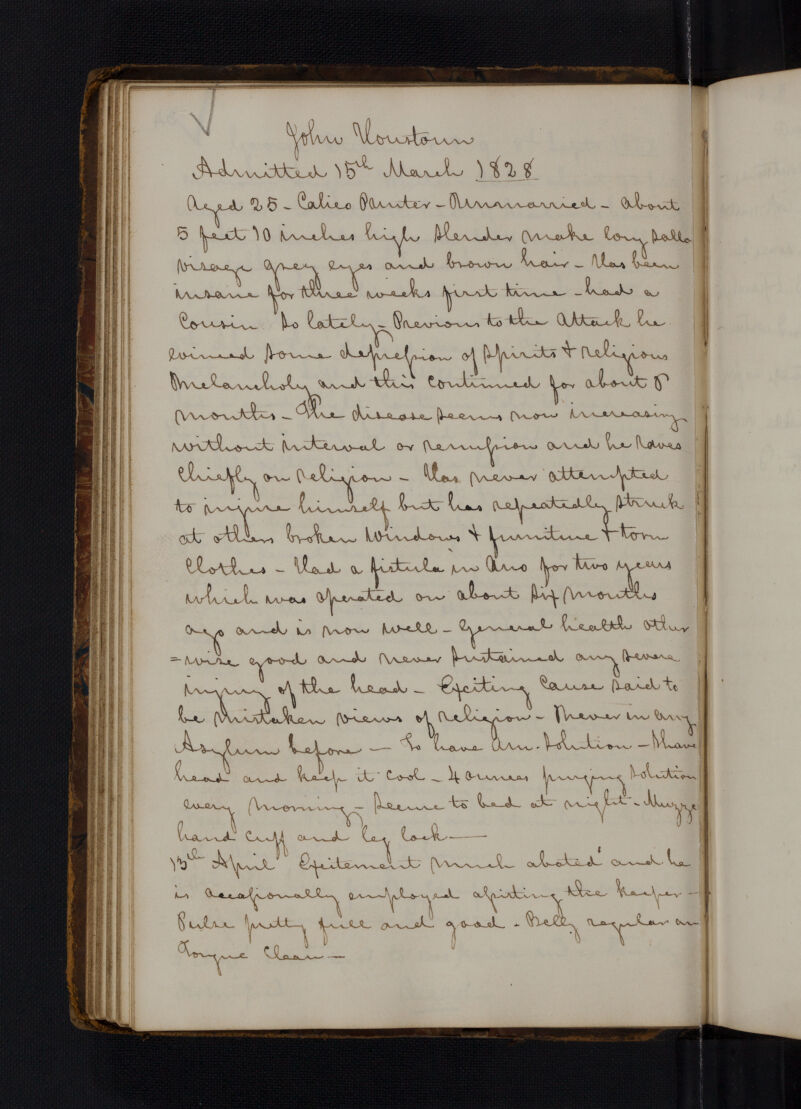 John Houstoun
Admitted 15th March 1828
Aged 25 - Calico Printer - Unmarried - about
5 feet 10 inches high slender make long sallo
visage grey eyes and brown hair - Has been
insane for three weeks first time - had a
Cousin so lately - Previous to the Attack he
evinced some depression of spirits & religious
Melancholy and this continued for about 8
months - The disease seems now increasing
without interval or remission and he raves
Chiefly on religion - Has never attempted
to injure himself but has repeatedly struck
at others broken Windows & furniture & torn
Clothes - Had a fistula in Ano for two years
which was operated on about six months
ago and is now well - General health other
=wise good and never sustained any severe
injury of the head - Exciting Cause said to
be Mistaken views of religion - Never in any
Asylum before - To have Am. Solution - Shave
head and keep it cool - 4 ounces purging solution
every morning - Secure to bed at night - Muzzle
hand cuff and leg lock -
13th April Excitement much abated and he
is occasionally employed assisting the keeper -
Pulse pretty full and good - Belly regular an
Tongue Clean -